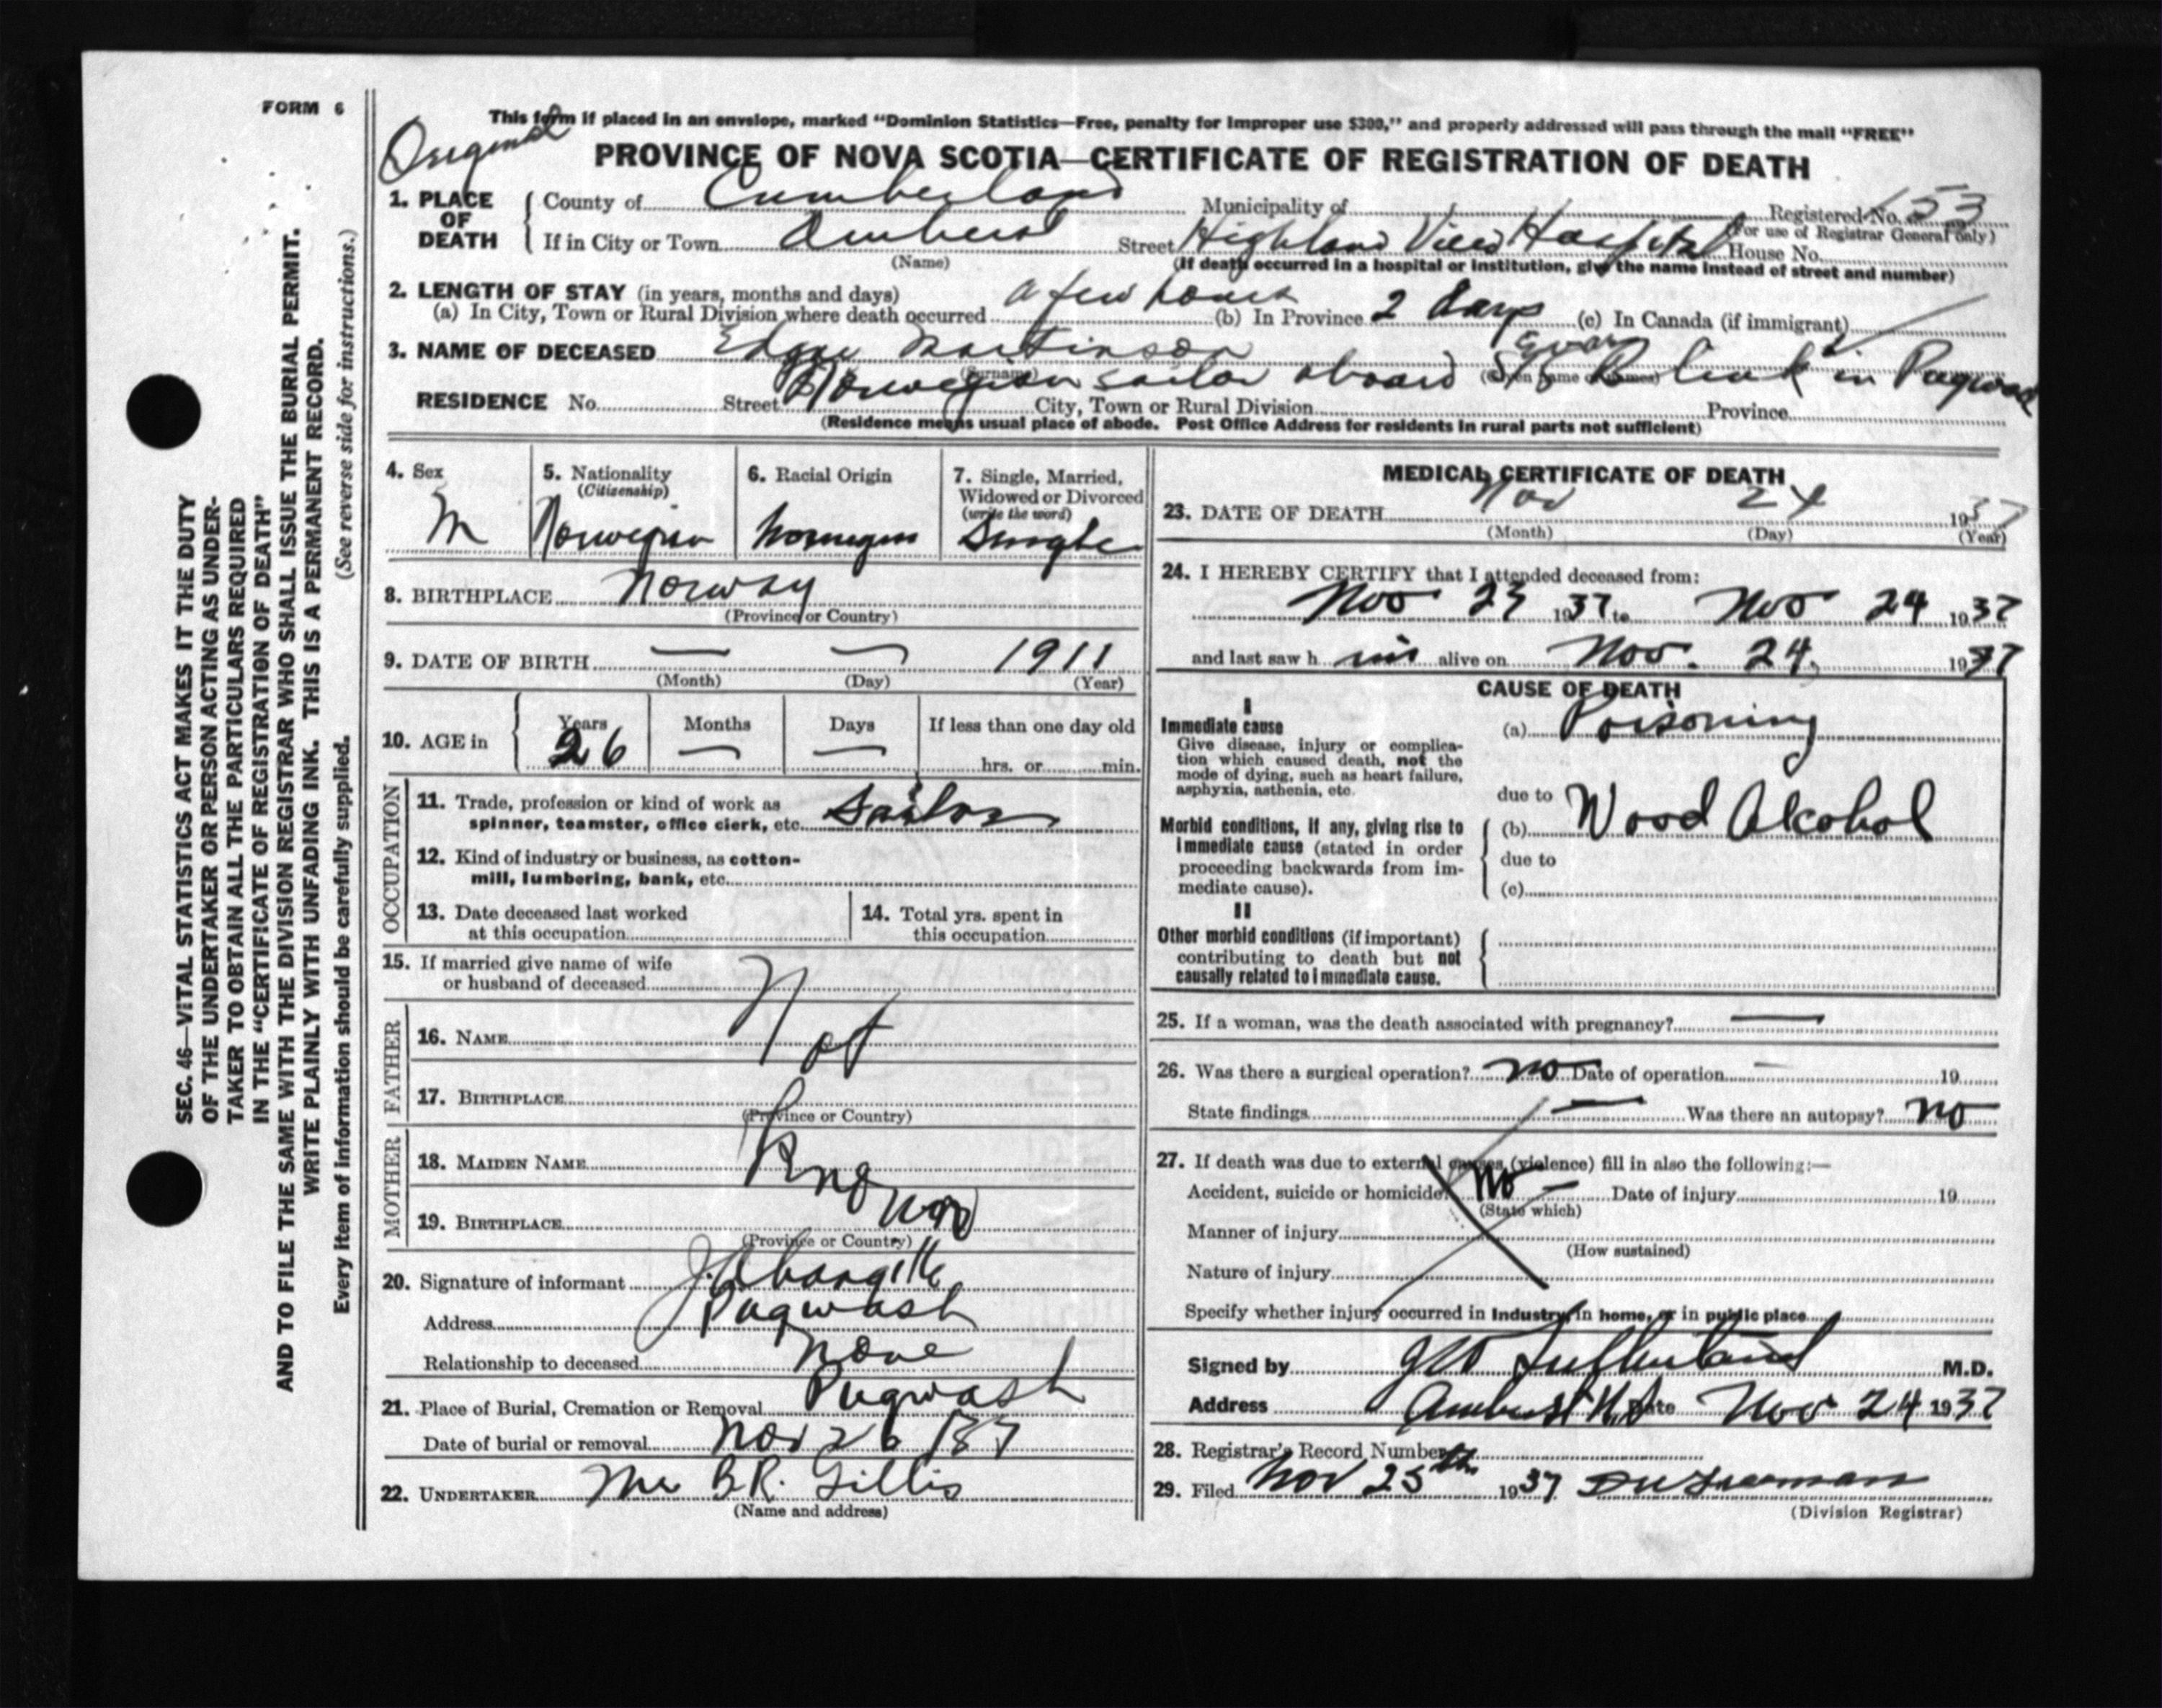 FORM 6
Original
This form if placed in an envelope, marked "Dominion Statistics—Free, penalty for improper use $300," and properly addressed will pass through the mail "FREE"
PROVINCE OF NOVA SCOTIA—CERTIFICATE OF REGISTRATION OF DEATH
1. PLACE OF DEATH County of Cumberland Municipality of Registered No. 153
(For use of Registrar General only)
If in City or Town Amherst Street Highland View Hospital House No.
(Name) (If death occurred in a hospital or institution, give the name instead of street and number)
2. LENGTH OF STAY (in years, months and days)
(a) In City, Town or Rural Division where death occurred a few hours (b) In Province 2 days (c) In Canada (if immigrant)
3. NAME OF DECEASED Martinson
(Surname) (Given name or names)
Norwegian sailor aboard S/S in Pugwash
RESIDENCE No. Street City, Town or Rural Division Province
(Residence means usual place of abode. Post Office Address for residents in rural parts not sufficient)
4. Sex M
5. Nationality (Citizenship) Norwegian
6. Racial Origin Norwegian
7. Single, Married, Widowed or Divorced (write the word) Single
8. BIRTHPLACE Norway
(Province or Country)
9. DATE OF BIRTH — — 1911
(Month) (Day) (Year)
10. AGE in Years 26 Months — Days — If less than one day old hrs. or min.
OCCUPATION
11. Trade, profession or kind of work as spinner, teamster, office clerk, etc. Sailor
12. Kind of industry or business, as cotton-mill, lumbering, bank, etc.
13. Date deceased last worked at this occupation
14. Total yrs. spent in this occupation
15. If married give name of wife or husband of deceased
Not
FATHER
16. NAME
17. BIRTHPLACE
(Province or Country)
Known
MOTHER
18. MAIDEN NAME
19. BIRTHPLACE
(Province or Country)
20. Signature of informant
Address Pugwash
Relationship to deceased None
21. Place of Burial, Cremation or Removal Pugwash
Date of burial or removal Nov 26/37
22. UNDERTAKER B.R. Gillis
(Name and address)
MEDICAL CERTIFICATE OF DEATH
23. DATE OF DEATH Nov 24 1937
(Month) (Day) (Year)
24. I HEREBY CERTIFY that I attended deceased from:
Nov 23 1937 to Nov 24 1937
and last saw him alive on Nov. 24, 1937
CAUSE OF DEATH
I
Immediate cause
Give disease, injury or complication which caused death, not the mode of dying, such as heart failure, asphyxia, asthenia, etc.
(a) Poisoning
due to
Morbid conditions, if any, giving rise to immediate cause (stated in order proceeding backwards from immediate cause).
(b) Wood Alcohol
due to
(c)
II
Other morbid conditions (if important) contributing to death but not causally related to immediate cause.
25. If a woman, was the death associated with pregnancy? —
26. Was there a surgical operation? No Date of operation — 19
State findings — Was there an autopsy? No
27. If death was due to external causes (violence) fill in also the following:—
Accident, suicide or homicide? No — Date of injury 19
(State which)
Manner of injury
(How sustained)
Nature of injury
Specify whether injury occurred in Industry, in home, or in public place
Signed by Sutherland M.D.
Address Amherst N.S. Date Nov 24 1937
28. Registrar's Record Number
29. Filed Nov 25th 1937
(Division Registrar)
SEC. 46—VITAL STATISTICS ACT MAKES IT THE DUTY
OF THE UNDERTAKER OR PERSON ACTING AS UNDER-
TAKER TO OBTAIN ALL THE PARTICULARS REQUIRED
IN THE "CERTIFICATE OF REGISTRATION OF DEATH"
AND TO FILE THE SAME WITH THE DIVISION REGISTRAR WHO SHALL ISSUE THE BURIAL PERMIT.
WRITE PLAINLY WITH UNFADING INK. THIS IS A PERMANENT RECORD.
Every item of information should be carefully supplied. (See reverse side for instructions.)